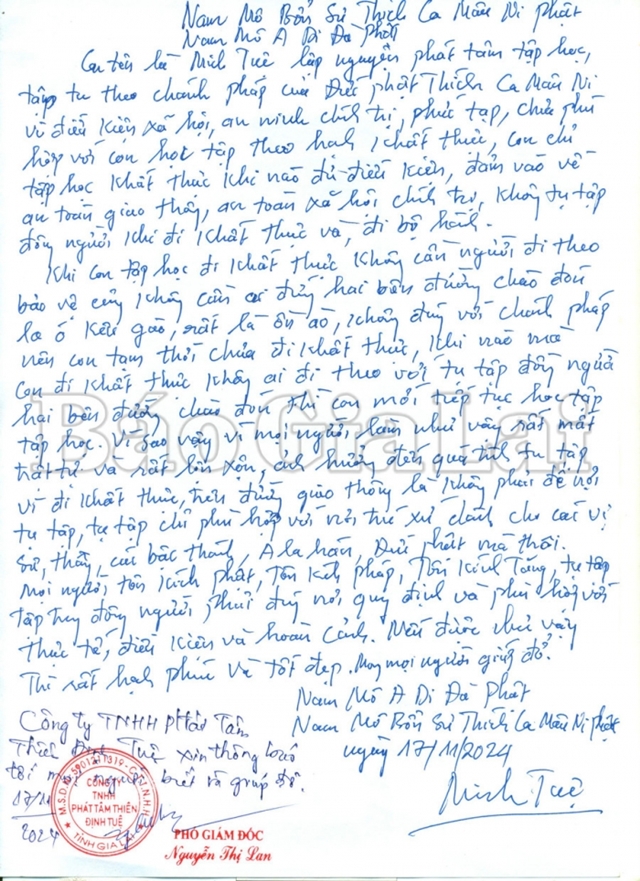 Nam Mô Bổn Sư Thích Ca Mâu Ni Phật
Nam Mô A Di Đà Phật
Con tên là Minh Tuệ lập nguyện phát tâm tập học,
tập tu theo chánh pháp của Đức Phật Thích Ca Mâu Ni
vì điều kiện xã hội, an ninh chính trị, phức tạp, chưa phù
hợp với con học tập theo hạnh khất thực, con chỉ
tập học khất thực khi nào đủ điều kiện, đảm bảo về
an toàn giao thông, an toàn xã hội chính trị, không tụ tập
đông người khi đi khất thực và, đi bộ hành.
Khi con tập học đi khất thực không cần người đi theo
bảo vệ cũng không cần ai đứng hai bên đường chào đón
la ó kêu gào, rất là ồn ào, không đúng với chánh pháp
nên con tạm thời chưa đi khất thực, khi nào mà
con đi khất thực không ai đi theo với tụ tập đông người
hai bên đường chào đón thì con mới tiếp tục học tập
tập học. Vì sao vậy vì mọi người làm như vậy rất mất
trật tự và rất lộn xộn, ảnh hưởng đến quá trình tu tập
vì đi khất thực, trên đường giao thông là không phải để nơi
tụ tập, tụ tập chỉ phù hợp với nơi trú xứ dành cho các vị
sư, thầy, các bậc thánh, A la hán, Đức Phật mà thôi.
Mọi người tôn kính phật, Tôn kính pháp, Tôn kính Tăng, tụ tập
tập trung đông người phải đúng nơi quy định và phù hợp với
thực tế, điều kiện và hoàn cảnh. Nếu được như vậy
Thì rất hạnh phúc và tốt đẹp. Mong mọi người giúp đỡ.
Nam Mô A Di Đà Phật
Nam Mô Bổn Sư Thích Ca Mâu Ni Phật
ngày 17/11/2024
Minh Tuệ
Công ty TNHH Phát Tâm
Thiền Định Tuệ xin thông báo
tới mọi người biết và giúp đỡ.
17/11
2024
CÔNG TY
TNHH
PHÁT TÂM THIỀN
ĐỊNH TUỆ
TỈNH GIA LAI
PHÓ GIÁM ĐỐC
Nguyễn Thị Lan
Báo Gia Lai